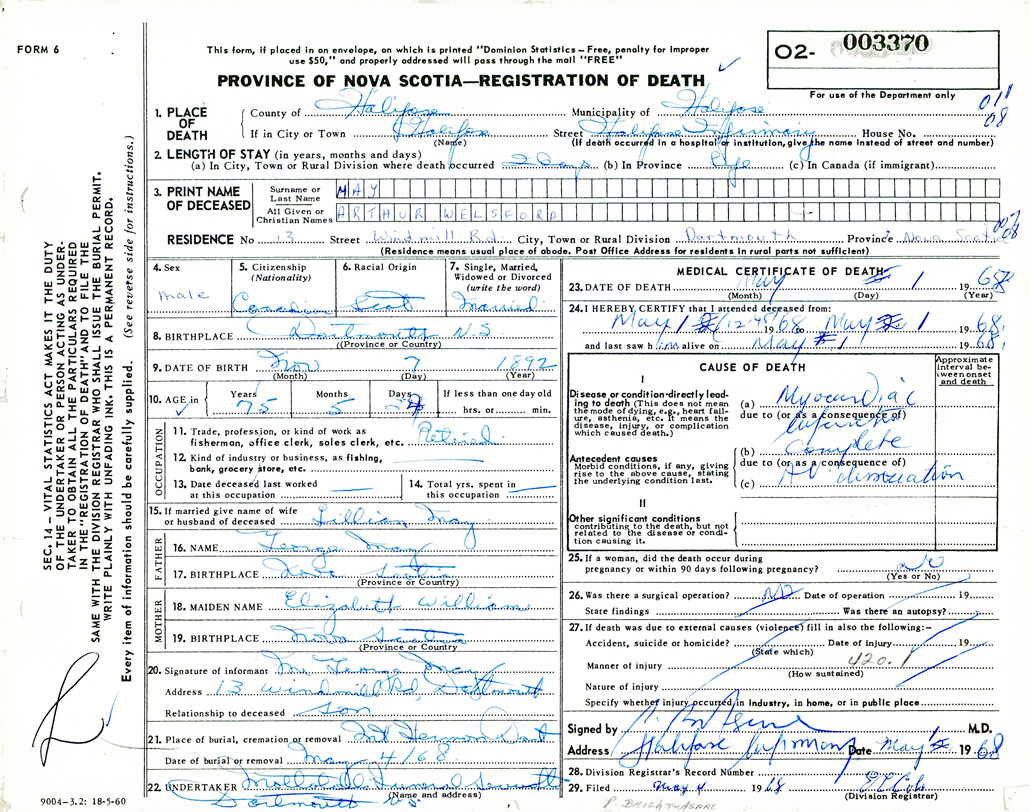 FORM 6
This form, if placed in an envelope, on which is printed "Dominion Statistics – Free, penalty for improper
use $50," and properly addressed will pass through the mail "FREE"
O2- 003370
For use of the Department only
PROVINCE OF NOVA SCOTIA—REGISTRATION OF DEATH
08
1. PLACE OF DEATH
County of Halifax Municipality of Halifax
If in City or Town Halifax Street Halifax Infirmary House No.
(Name) (If death occurred in a hospital or institution, give the name instead of street and number)
2. LENGTH OF STAY (in years, months and days)
(a) In City, Town or Rural Division where death occurred 2 Days (b) In Province Life (c) In Canada (if immigrant)
3. PRINT NAME OF DECEASED
Surname or Last Name MAY
All Given or Christian Names ARTHUR WELSFORD
RESIDENCE No 13 Street Windmill Rd. City, Town or Rural Division Dartmouth Province Nova Scotia
(Residence means usual place of abode. Post Office Address for residents in rural parts not sufficient)
4. Sex male
5. Citizenship (Nationality) Canadian
6. Racial Origin Scot
7. Single, Married, Widowed or Divorced (write the word) Married
8. BIRTHPLACE Dartmouth N.S
(Province or Country)
9. DATE OF BIRTH Nov 7 1892
(Month) (Day) (Year)
10. AGE in Years 75 Months 5 Days 24 If less than one day old
hrs. or min.
OCCUPATION
11. Trade, profession, or kind of work as
fisherman, office clerk, sales clerk, etc. Retired
12. Kind of industry or business, as fishing,
bank, grocery store, etc.
13. Date deceased last worked
at this occupation
14. Total yrs. spent in
this occupation
15. If married give name of wife
or husband of deceased Lillian May
FATHER
16. NAME George May
17. BIRTHPLACE Nova Scotia
(Province or Country)
MOTHER
18. MAIDEN NAME Elizabeth William
19. BIRTHPLACE Nova Scotia
(Province or Country
20. Signature of informant Mr George May
Address 13 Windmill Rd, Dartmouth
Relationship to deceased son
21. Place of burial, cremation or removal Mt Hermon Dart
Date of burial or removal May 4/68
22. UNDERTAKER Funeral
Dartmouth N.S.
(Name and address)
9004–3.2: 18-5-60
MEDICAL CERTIFICATE OF DEATH
23. DATE OF DEATH May 1 1968
(Month) (Day) (Year)
24. I HEREBY CERTIFY that I attended deceased from:
May 1 (12.45) 1968 May 1 1968
and last saw him alive on May 1 1968
CAUSE OF DEATH
Approximate interval between onset and death
I
Disease or condition directly leading to death (This does not mean the mode of dying, e.g., heart failure, asthenia, etc. It means the disease, injury, or complication which caused death.)
(a) Myocardiac
due to (or as a consequence of)
Infarction
Antecedent causes
Morbid conditions, if any, giving rise to the above cause, stating the underlying condition last.
(b) Complete
due to (or as a consequence of)
(c) AV dissociation
II
Other significant conditions
contributing to the death, but not related to the disease or condition causing it.
25. If a woman, did the death occur during
pregnancy or within 90 days following pregnancy? No
(Yes or No)
26. Was there a surgical operation? No Date of operation 19
State findings Was there an autopsy?
27. If death was due to external causes (violence) fill in also the following:-
Accident, suicide or homicide? Date of injury 19
(State which)
420.1
Manner of injury
(How sustained)
Nature of injury
Specify whether injury occurred in Industry, in home, or in public place
Signed by M.D.
Address Halifax Infirmary Date May 1968
28. Division Registrar's Record Number
29. Filed May 4 1968
(Division Registrar)
SEC. 14 – VITAL STATISTICS ACT MAKES IT THE DUTY
OF THE UNDERTAKER OR PERSON ACTING AS UNDER-
TAKER TO OBTAIN ALL THE PARTICULARS REQUIRED
IN THE "REGISTRATION OF DEATH" AND TO FILE THE
SAME WITH THE DIVISION REGISTRAR WHO SHALL ISSUE THE BURIAL PERMIT.
WRITE PLAINLY WITH UNFADING INK. THIS IS A PERMANENT RECORD.
Every item of information should be carefully supplied. (See reverse side for instructions.)